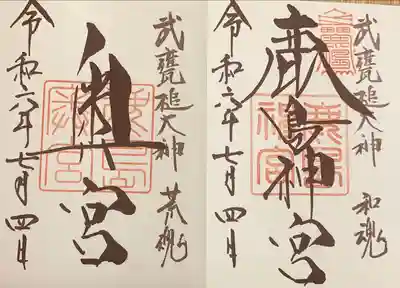 武甕槌大神 和魂
鹿島神宮
鹿島神宮
令和六年七月四日
武甕槌大神 荒魂
奥宮
鹿島奥宮
令和六年七月四日